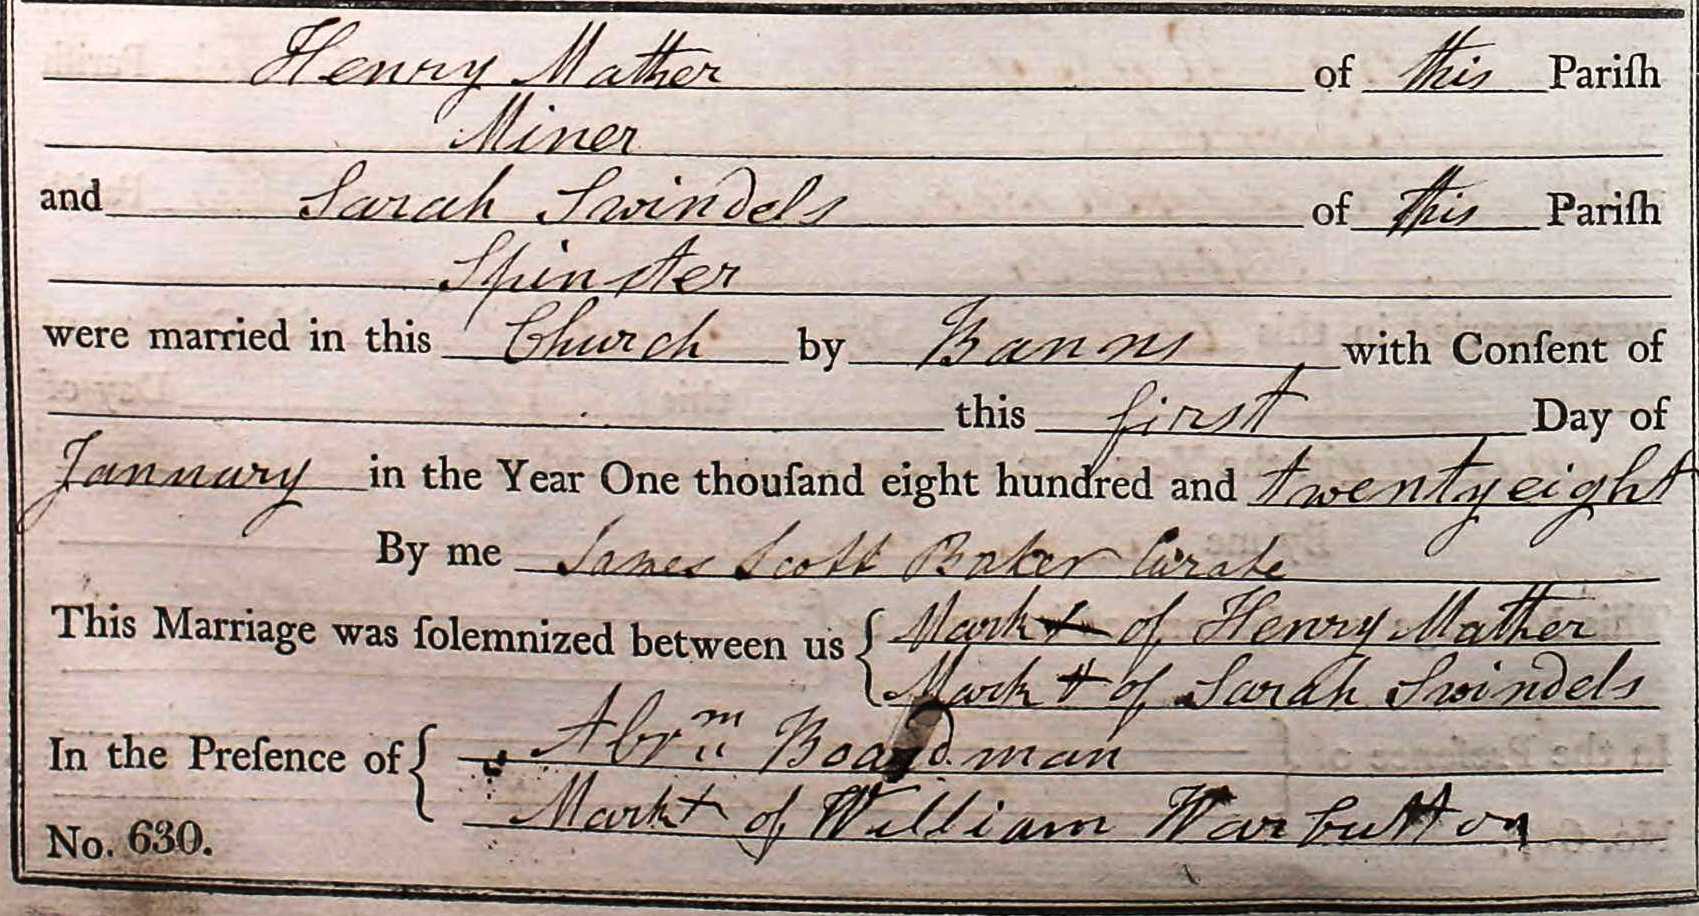 Henry Mather of this Pariſh
Miner
and Sarah Swindels of this Pariſh
Spinster
were married in this Church by Banns with Conſent of
this first Day of
January in the Year One thouſand eight hundred and twenty eight
By me James Scott Baker Curate
This Marriage was ſolemnized between us { Mark + of Henry Mather
Mark + of Sarah Swindels
In the Preſence of { Abrm Boardman
Mark + of William Warbutton
No. 630.